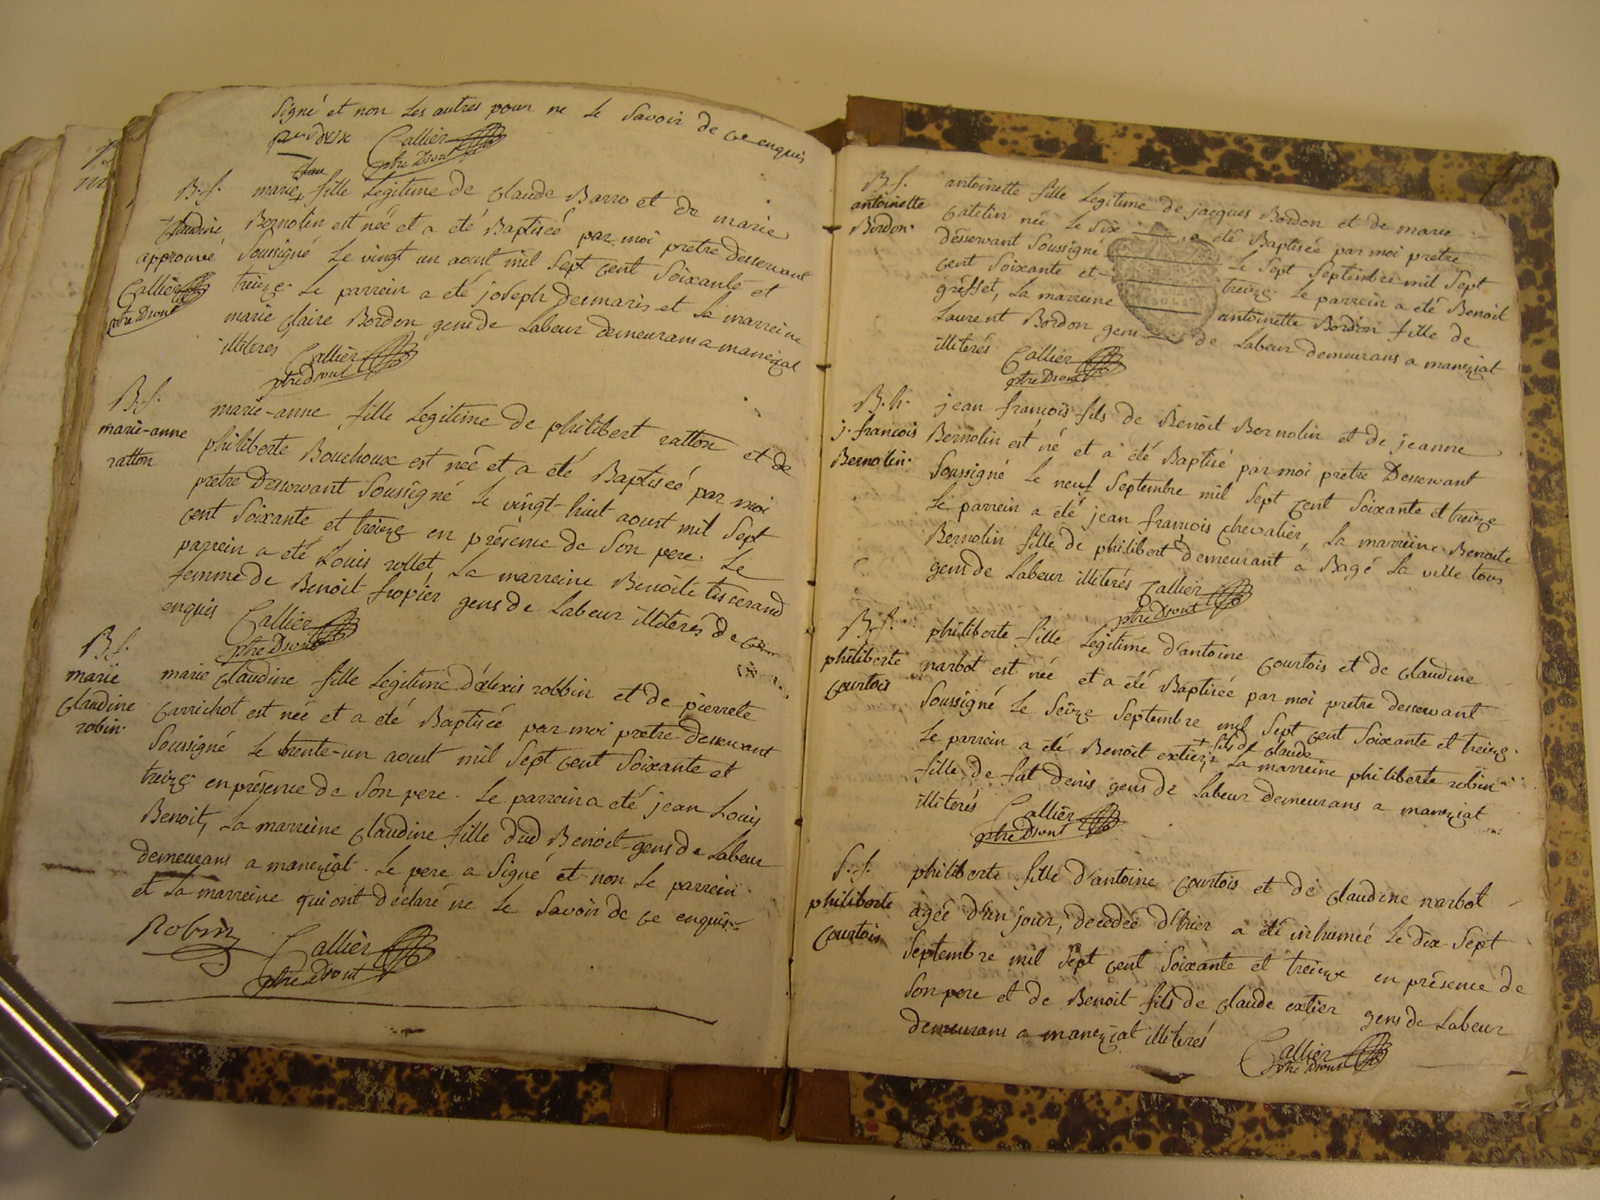 Signé et non Les autres pour ne Le Savoir de ce enquis
Callier
ptre Dsvnt
B. f.
Claudine
approuvé
Callier
ptre Dsvnt
marie fille Legitime de Claude Barro et de marie
Bernolin est née et a été Baptiséé par moi pretre desservant
Soussigné Le vingt un aoust mil Sept cent Soixante et
treize Le parrein a été joseph desmaris et La marreine
marie Claire Bordon gens de Labeur demeurans a manéziat
illiterés
Callier
ptre Dsvnt
B. f.
marie-anne
ratton
marie-anne fille Legitime de philibert ratton et de
philiberte Bouchoux est néé et a été Baptiséé par moi
pretre desservant Soussigné Le vingt-huit aoust mil Sept
cent Soixante et treize en présence de Son pere. Le
parrein a été Louis rollet La marreine Benoite tisserand
femme de Benoit fropier gens de Labeur illiterés de ce
enquis
Callier
ptre Dsvnt
B. f.
marie
Claudine
robin
marie Claudine fille Legitime d'alexis robbin et de pierrete
Carrichot est née et a été Baptiséé par moi pretre desservant
Soussigné Le trente-un aoust mil Sept cent Soixante et
treize en présence de Son pere. Le parrein a été jean Louis
Benoit, La marreine Claudine fille dud Benoit gens de Labeur
demeurans a maneziat. Le pere a Signé et non Le parrein
et La marreine qui ont déclaré ne Le Savoir de ce enquis
Robin
Callier
ptre Dsvnt
B. f.
antoinette
Bordon
antoinette fille Legitime de jacques Bordon et de marie
Catelin née Le Six a été Baptisée par moi pretre
desservant Soussigné Le Sept Septembre mil Sept
cent Soixante et treize Le parrein a été Benoit
greffet, La marreine antoinette Bordon fille de
Laurent Bordon gens de Labeur demeurans a maneziat
illiterés
Callier
ptre Dsvnt
B. h.
j. francois
Bernolin
jean françois fils de Benoit Bernolin et de jeanne
Bernolin est né et a été Baptisé par moi pretre Desservant
Soussigné Le neuf Septembre mil Sept cent Soixante et treize
Le parrein a été jean françois chevalier, La marreine Benoite
Bernolin fille de philibert demeurant a Bagé La ville tous
gens de Labeur illiterés
Callier
ptre Dsvnt
B. f.
philiberte
Courtois
philiberte fille Legitime d'antoine Courtois et de Claudine
narbot est née et a été Baptisée par moi pretre desservant
Soussigné Le Seize Septembre mil Sept cent Soixante et treize.
+ fils de Claude
Le parrein a été Benoit extier + La marreine philiberte robin
fille de fut denis gens de Labeur demeurans a maneziat
illiterés
Callier
ptre Dsvnt
S. f.
philiberte
Courtois
philiberte fille d'antoine Courtois et de Claudine narbot
agée d'un jour, decedée d'hier a été inhumée Le dix Sept
Septembre mil Sept cent Soixante et treize en présence de
Son pere et de Benoit fils de Claude extier gens de Labeur
demeurans a maneziat illiterés
Callier
ptre Dsvnt